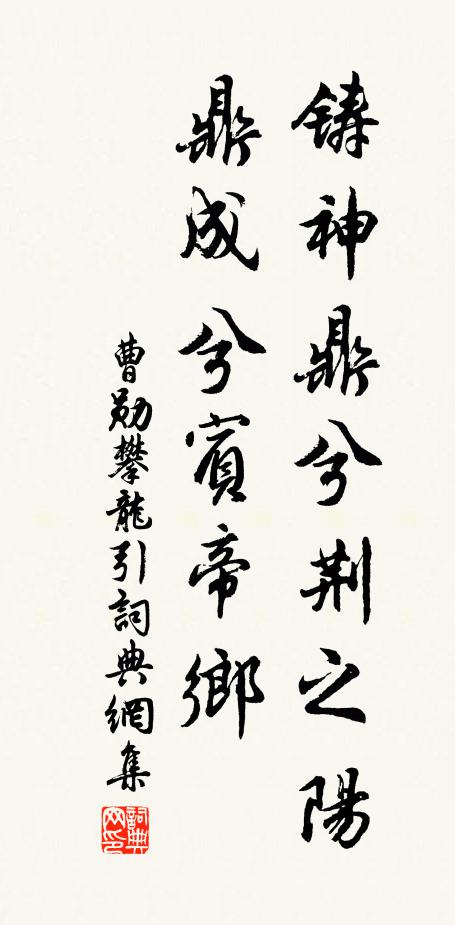 鑄神鼎兮荆之陽
鼎成兮賓帝鄉
曹勛攀龍引詞典網集
詞典网印